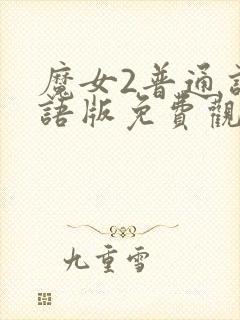 魔女2普通話
語版免費觀
九重雪